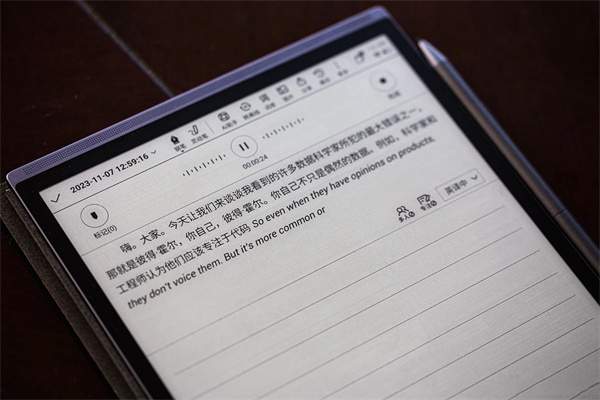 2023-11-07 12:59:16
00:00:24
标记(0)
嗨。大家。今天让我们来谈谈我看到的许多数据科学家所犯的最大错误之一。
那就是彼得·霍尔，你自己，彼得·霍尔。你自己不只是偶然的数据。例如，科学家和
工程师认为他们应该专注于代码 So even when they have opinions on products,
they don't voice them. But it's more common or
多人
专注
英译中